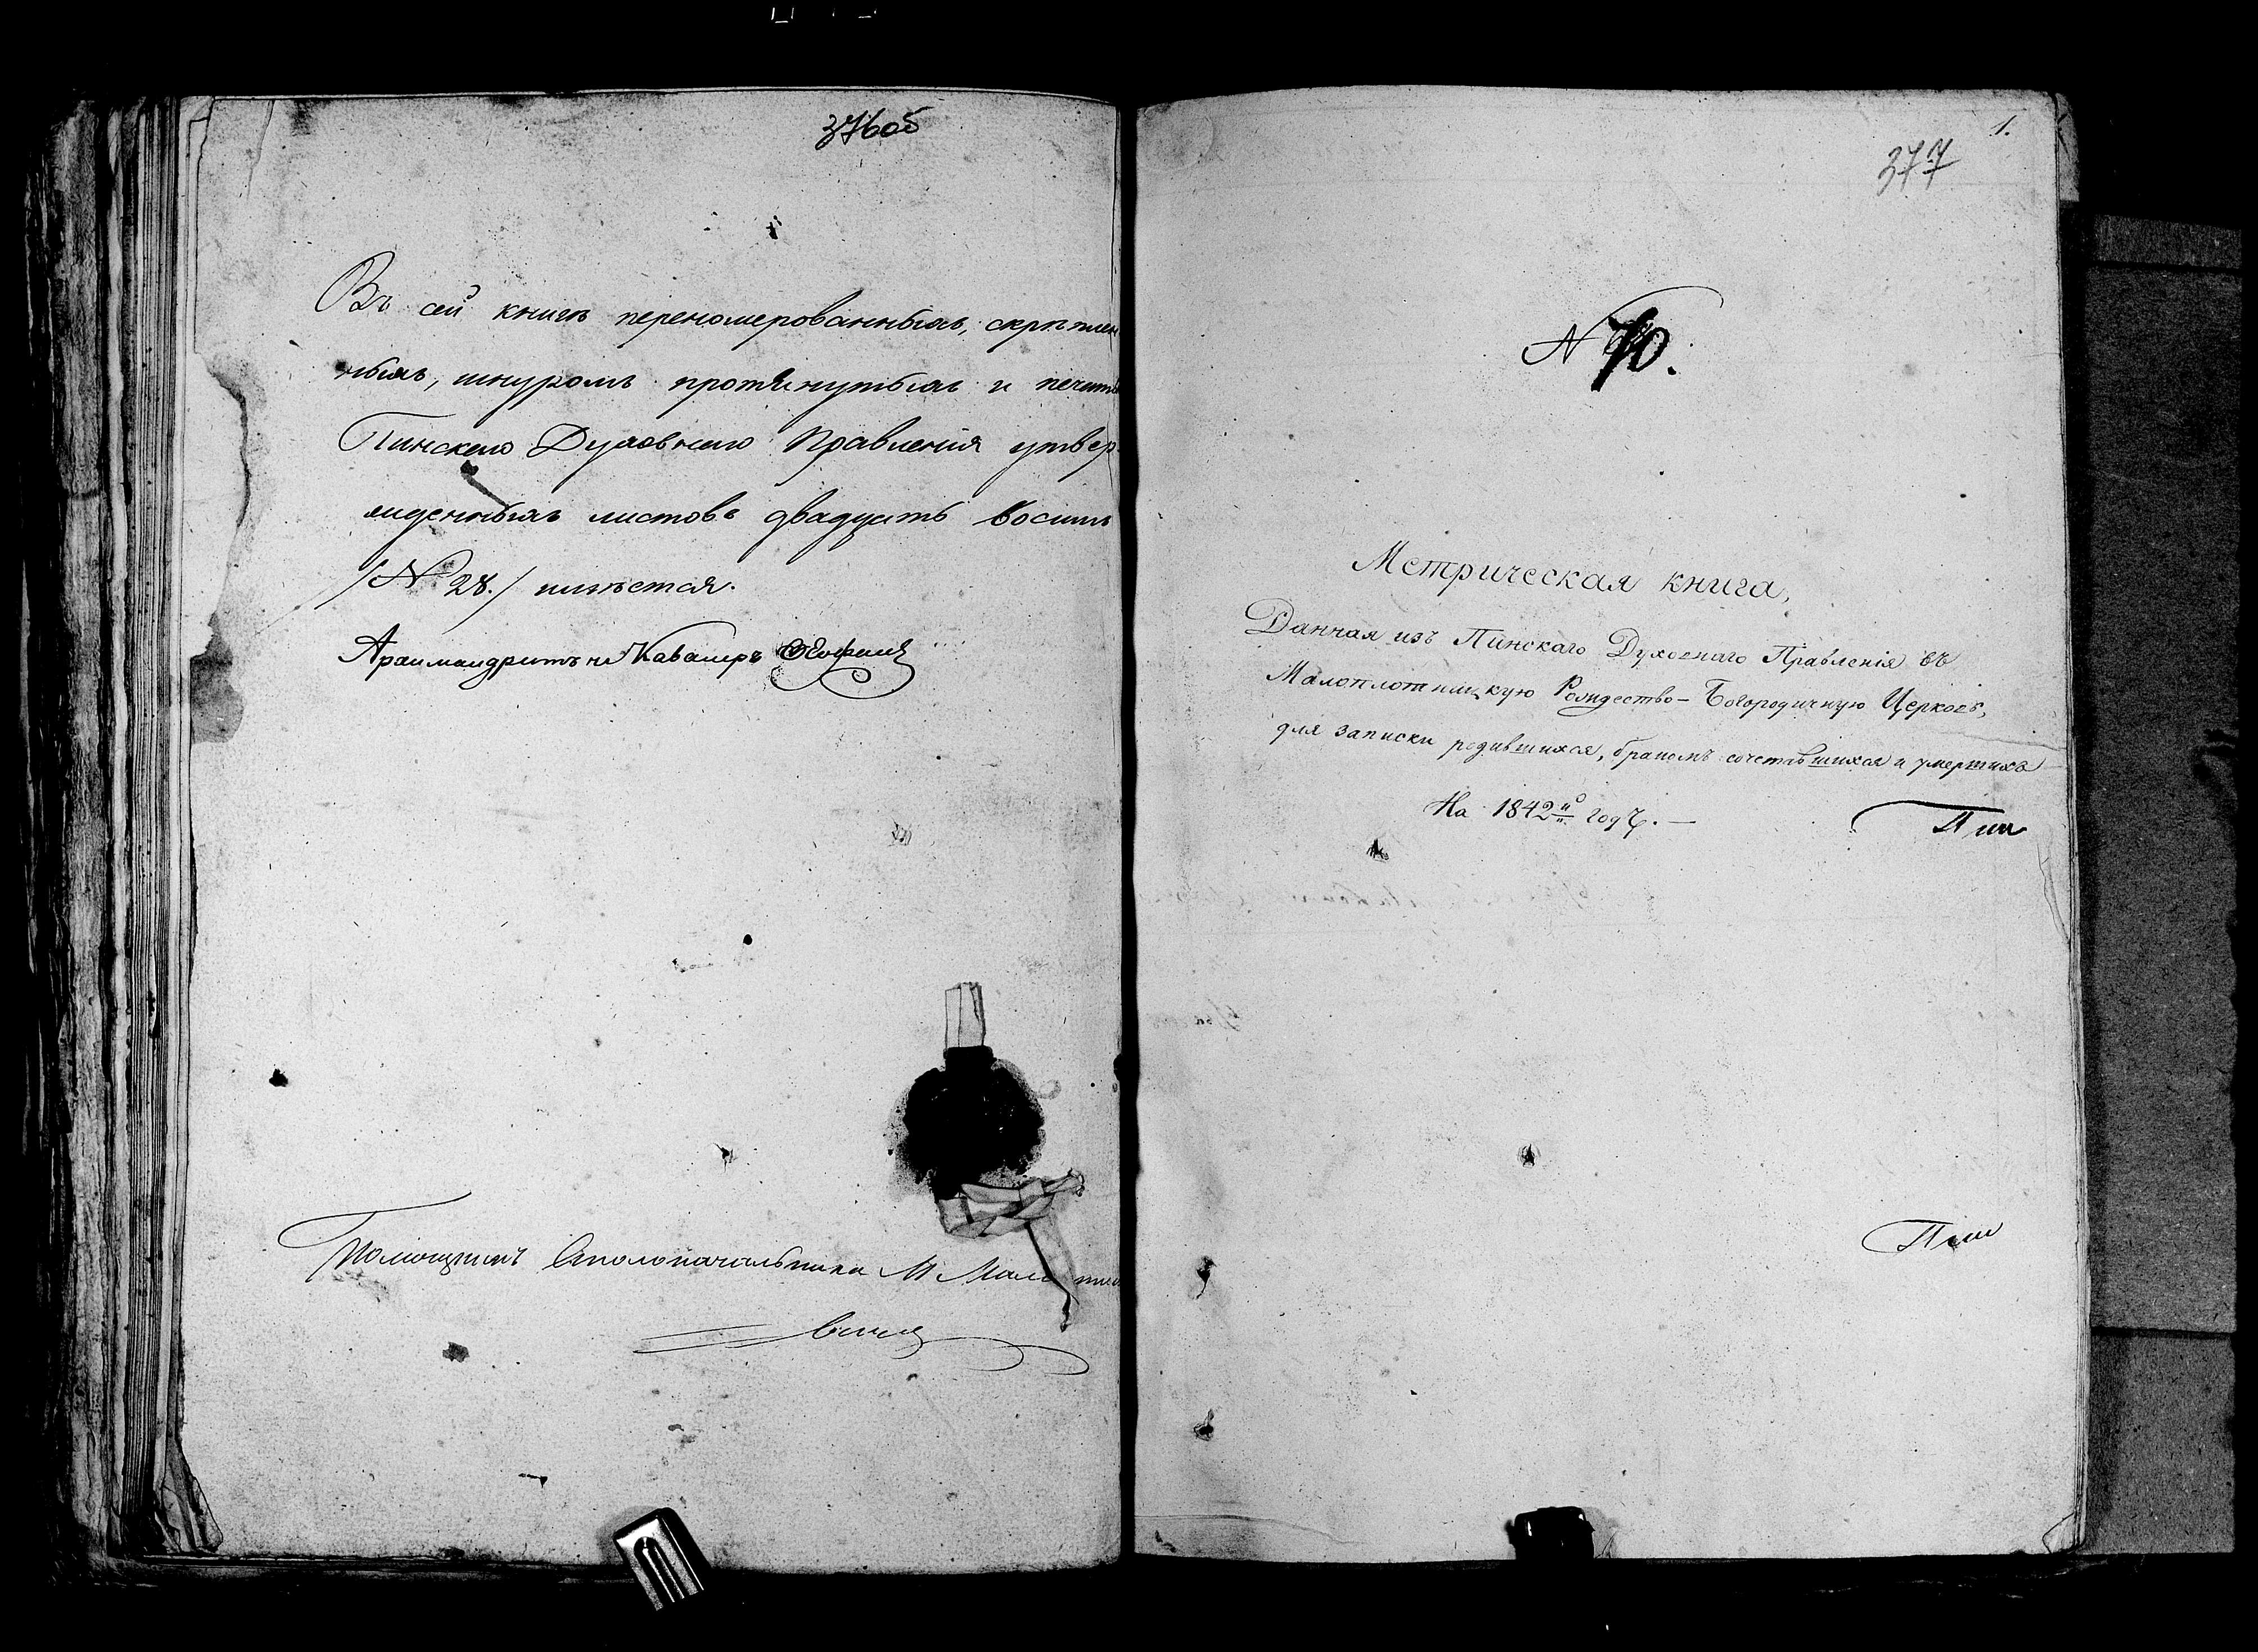 376об
Въ сей книгѣ переномерованныхъ, скрѣплен
ныхъ, шнуромъ протянутыхъ и печатью
Пинскаго Духовнаго Правленія утвер
жденныхъ листовъ двадцать восимь
/№ 28./ имѣется.
Архимандритъ и Кавалеръ
Помощникъ Столоначальника М
1.
377
№ 70.
Метрическая книга,
Данная изъ Пинскаго Духовнаго Правленія въ
Малоплотницкую Рождество-Богородичную Церковь,
для записки родившихся, бракомъ сочетавшихся и умершихъ
На 1842й годъ. —
Пин